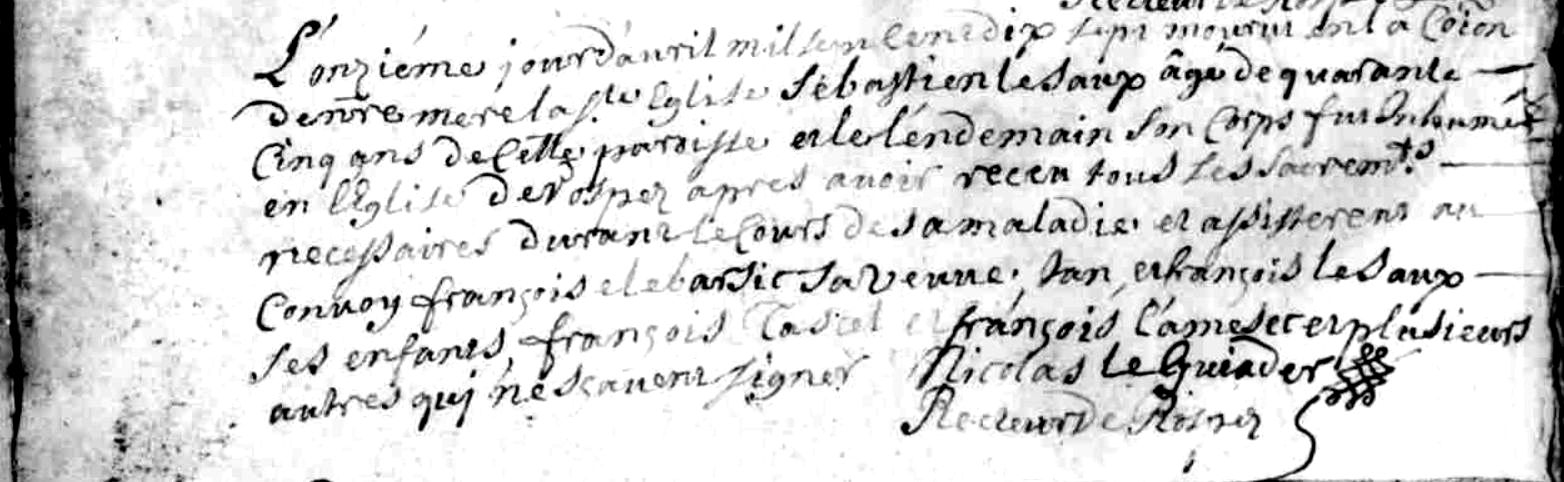 Recteur de Rospez
L'onziéme jour d'avril mil sept cent dix sept mourut en la Cõion
de nr̃e mere la ste Eglise Sébastien le Saux âgé de quarante
Cinq ans de Cette paroisse et le léndemain son Corps fut Inhumé
en l'Eglise de Rospez apres avoir receu tous ses sacremts
necessaires durant le Cours de sa maladie et assisterent au
Convoy françois e le barsic sa veuve, Jan, et françois le Saux
ses enfants, françois Tascel et françois Camesec et plusieurs
autres quj ne sçavent signer Nicolas Le Guiader
Recteur de Rospez